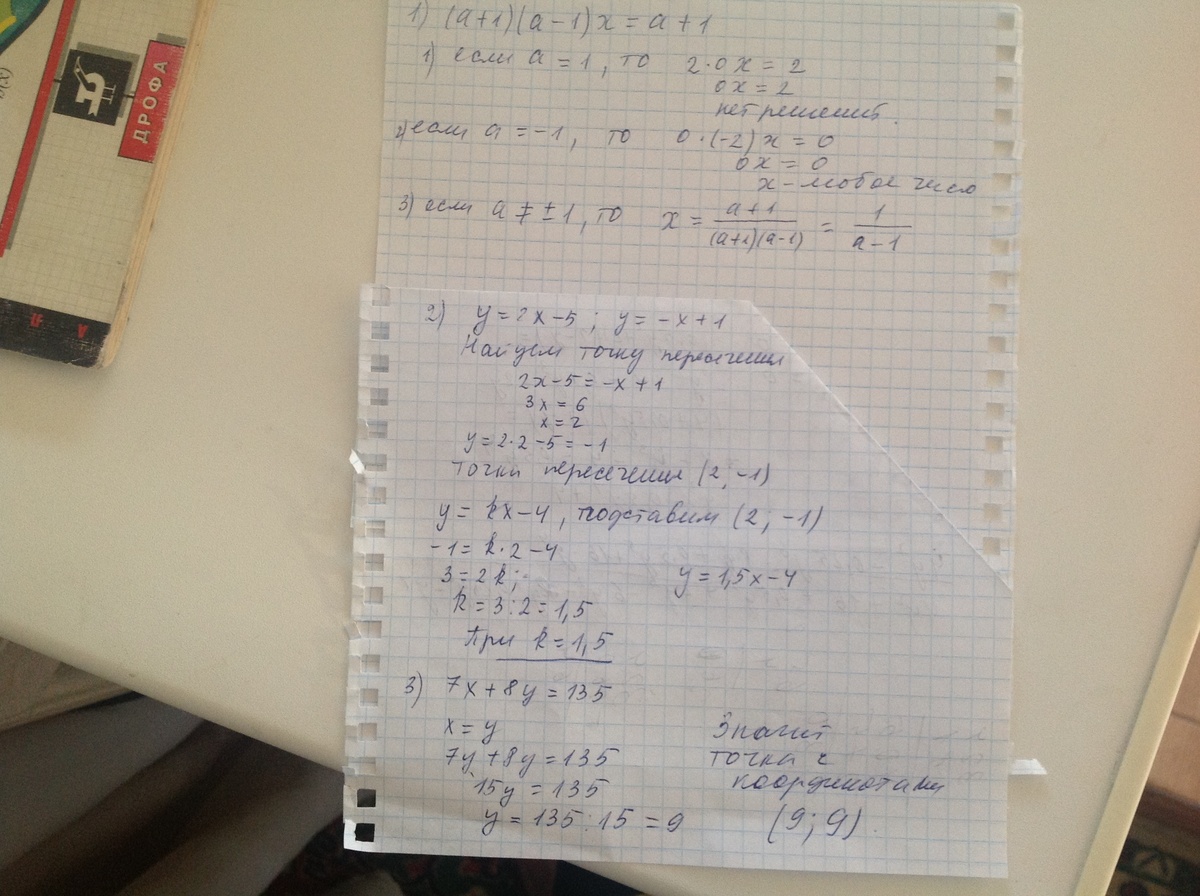 ДРОФА
1) (a+1)(a-1)x = a+1
1) если a = 1, то 2·0x = 2
0x = 2
нет решений.
2) если a = -1, то 0·(-2)x = 0
0x = 0
x - любое число
3) если a ≠ ±1, то x = (a+1)/((a+1)(a-1)) = 1/(a-1)
2) y = 2x-5; y = -x+1
Найдем точку пересечения
2x-5 = -x+1
3x = 6
x = 2
y = 2·2-5 = -1
Точка пересечения (2, -1)
y = kx-4, подставим (2; -1)
-1 = k·2-4
3 = 2k;
y = 1,5x-4
k = 3:2 = 1,5
При k = 1,5
3) 7x+8y = 135
x = y
7y+8y = 135
15y = 135
y = 135:15 = 9
Значит
точка с
координатами
(9; 9).